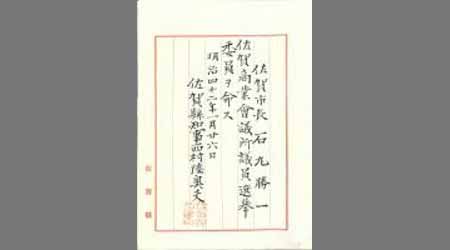 佐賀市長 石丸勝一
佐賀商業會議所議員選擧
委員ヲ命ス
明治四十二年一月廿六日
佐賀縣知事西村陸奥夫
佐賀縣